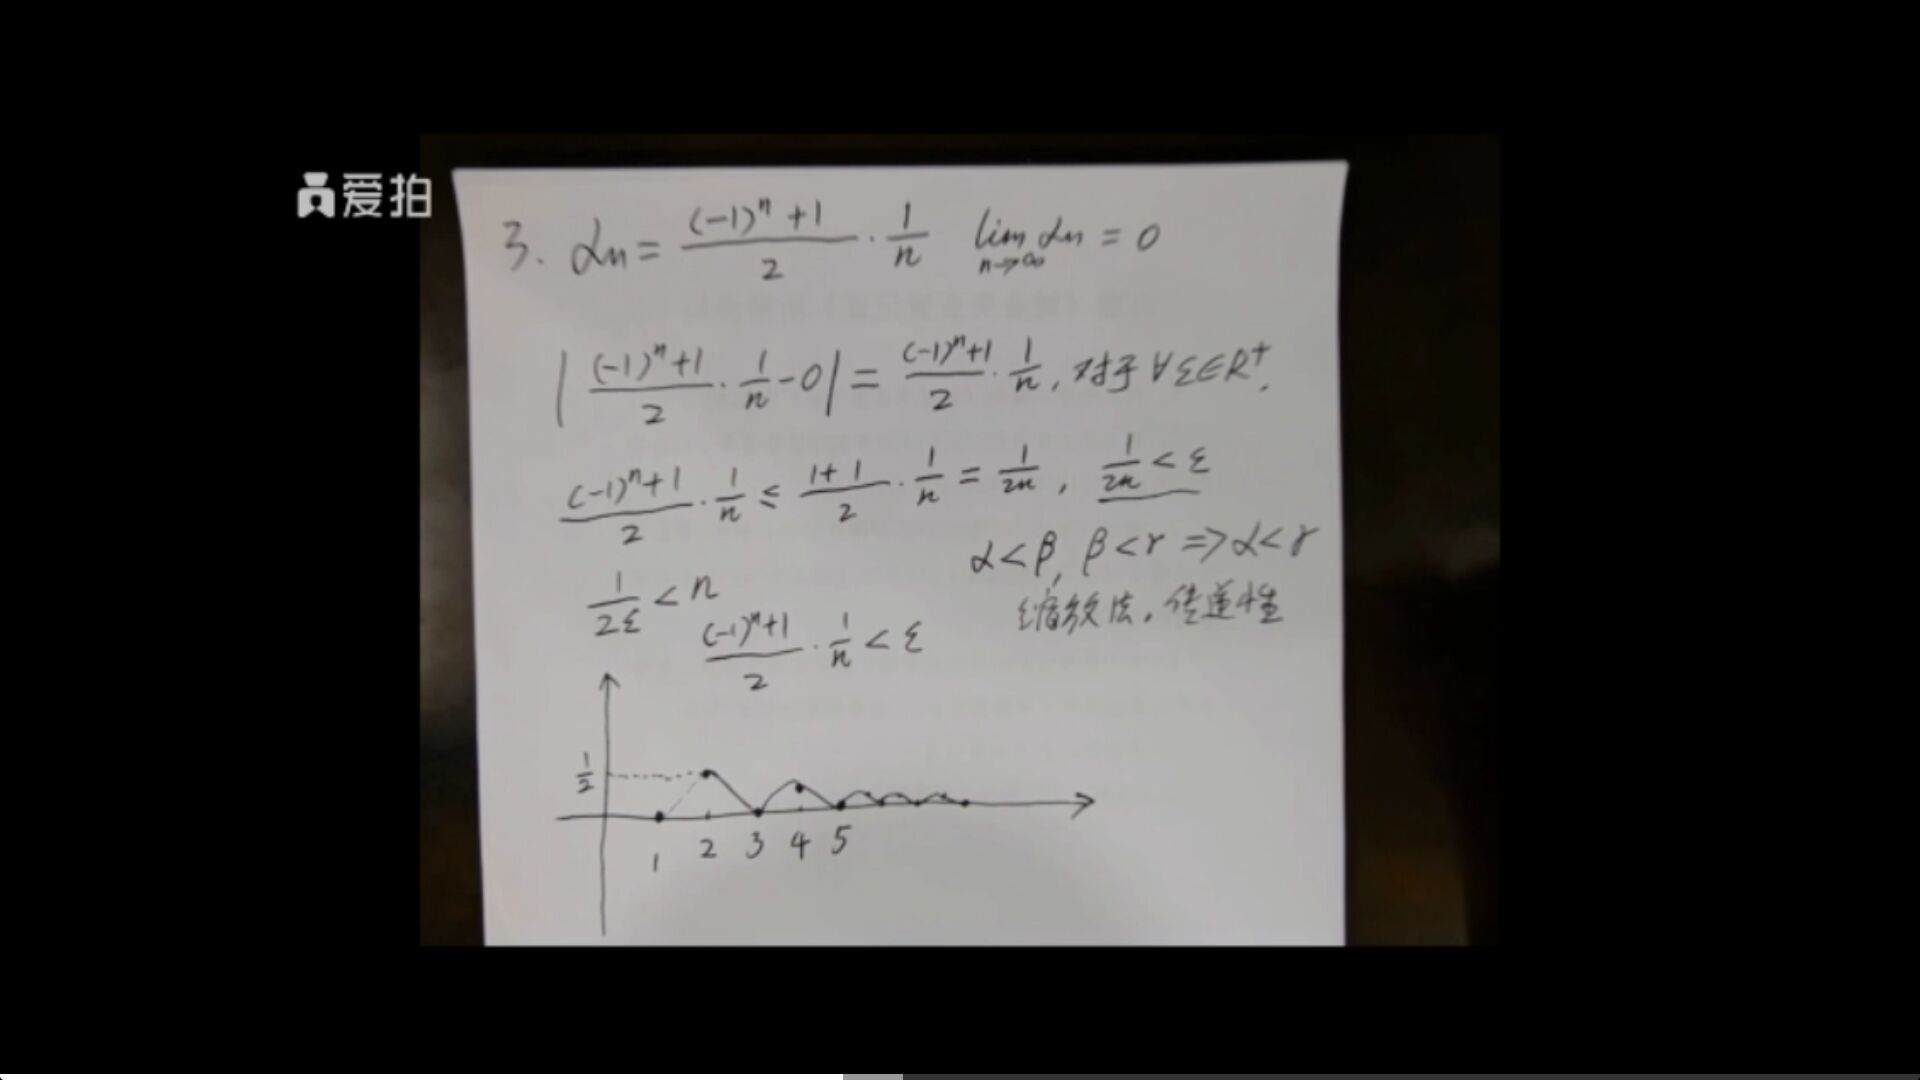 爱拍
3. αn = ((-1)^n +1)/2 · 1/n lim n→∞ αn = 0
| ((-1)^n+1)/2 · 1/n - 0 | = ((-1)^n+1)/2 · 1/n , 对于 ∀ε∈R⁺,
((-1)^n+1)/2 · 1/n ≤ (1+1)/2 · 1/n = 1/2n , 1/2n < ε
α<β, β<γ ⇒ α<γ
1/2ε < n
缩放法, 传递性
((-1)^n+1)/2 · 1/n < ε
1/2
1 2 3 4 5